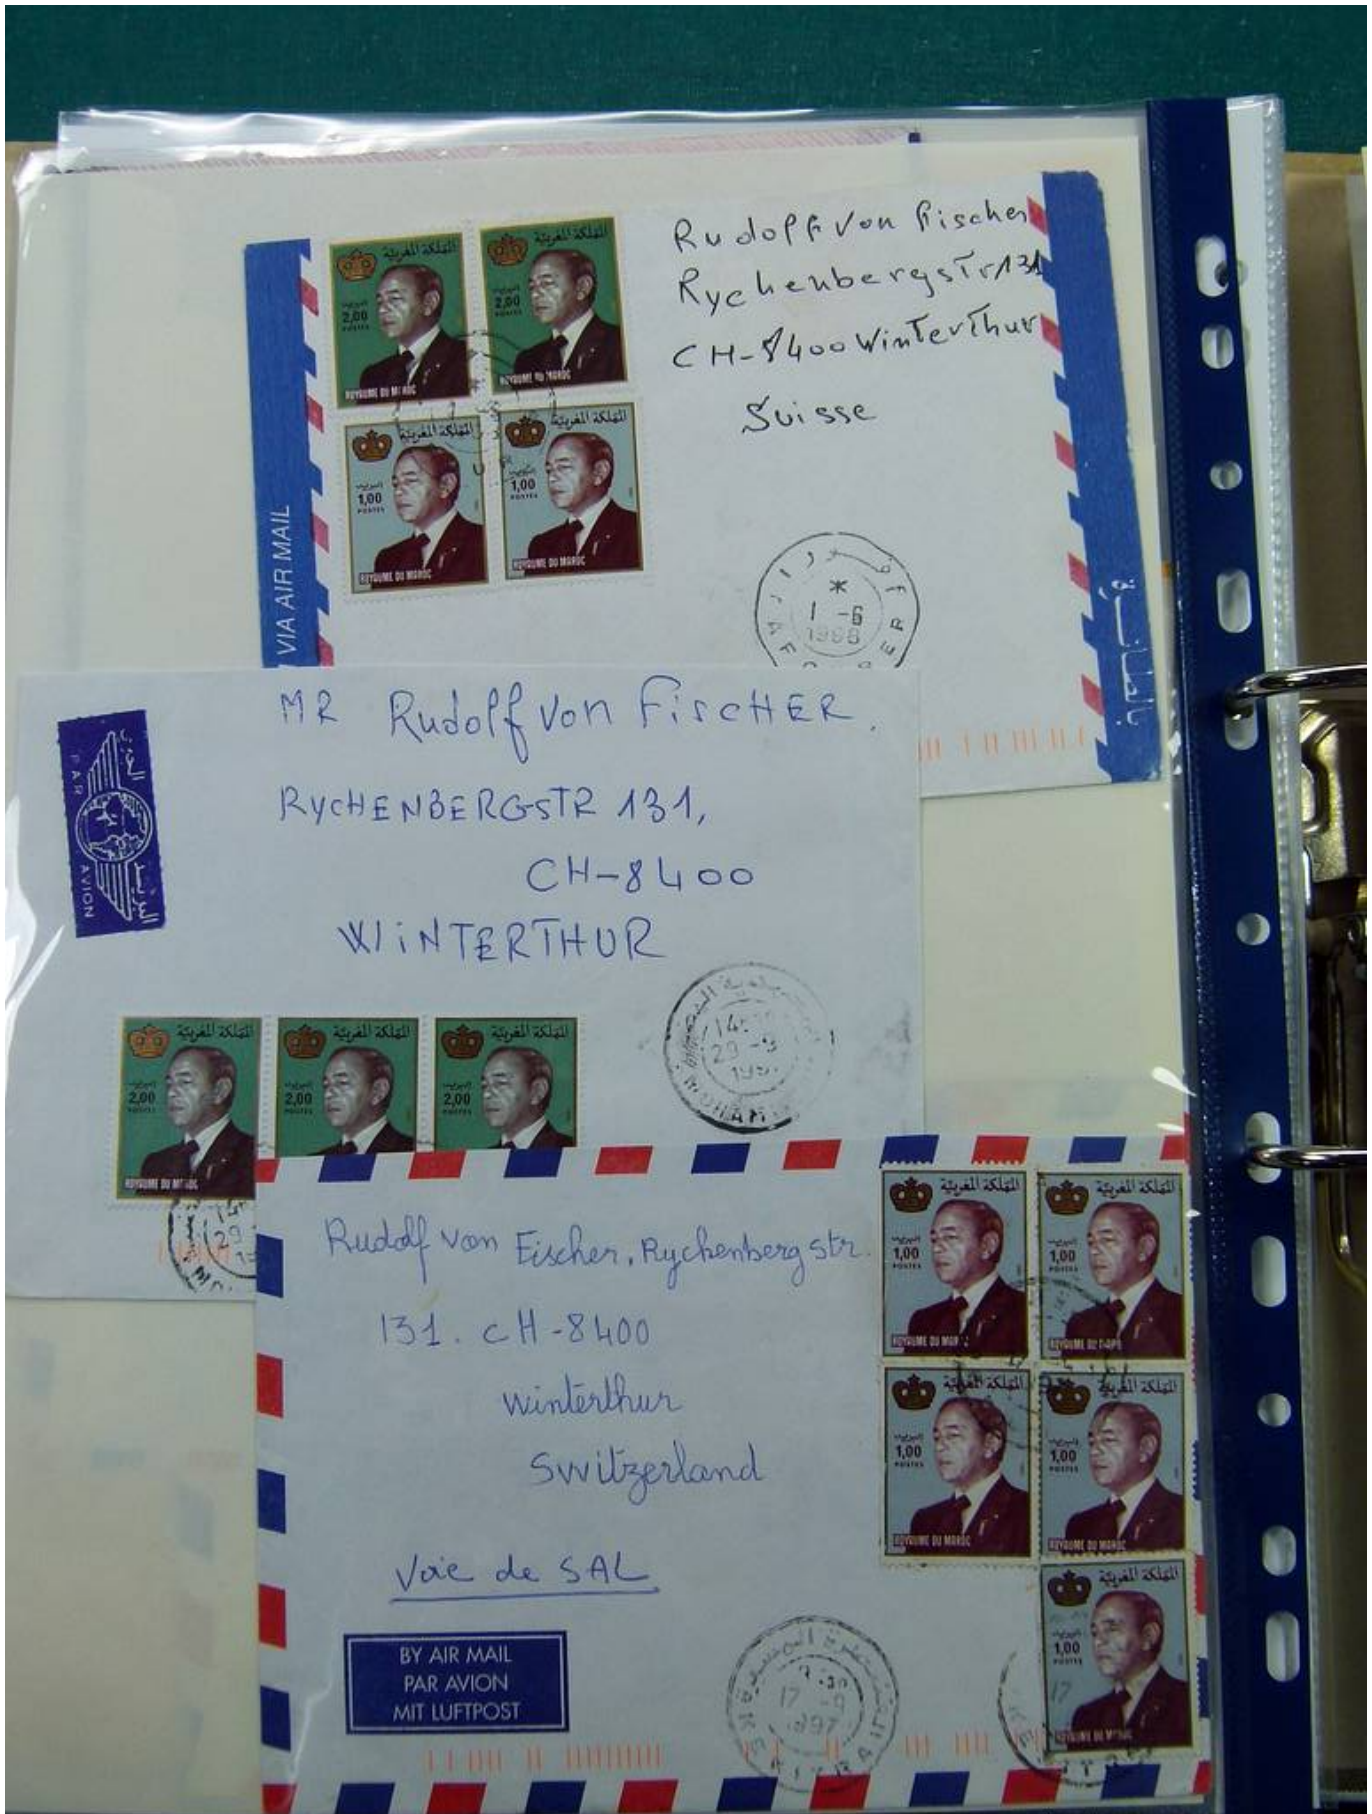 المملكة المغربية
2,00
POSTES
ROYAUME DU MAROC
المملكة المغربية
2,00
POSTES
ROYAUME DU MAROC
المملكة المغربية
1,00
POSTES
ROYAUME DU MAROC
المملكة المغربية
1,00
POSTES
ROYAUME DU MAROC
VIA AIR MAIL
Rudolff von Fischer
Rychenbergstr 131
CH-8400 Winterthur
Suisse
1 -6
MR Rudolf von FiscHER.
RYCHENBERGSTR 131,
CH-8400
WiNTERTHUR
PAR AVION
29 -9
المملكة المغربية
2,00
POSTES
ROYAUME DU MAROC
المملكة المغربية
2,00
POSTES
المملكة المغربية
2,00
POSTES
Rudolf von Fischer, Rychenberg str.
131. CH-8400
Winterthur
Switzerland
Voie de SAL
BY AIR MAIL
PAR AVION
MIT LUFTPOST
17 -9
المملكة المغربية
1,00
POSTES
ROYAUME DU MAROC
المملكة المغربية
1,00
POSTES
ROYAUME DU MAROC
المملكة المغربية
1,00
POSTES
ROYAUME DU MAROC
المملكة المغربية
1,00
POSTES
ROYAUME DU MAROC
المملكة المغربية
1,00
POSTES
ROYAUME DU MAROC